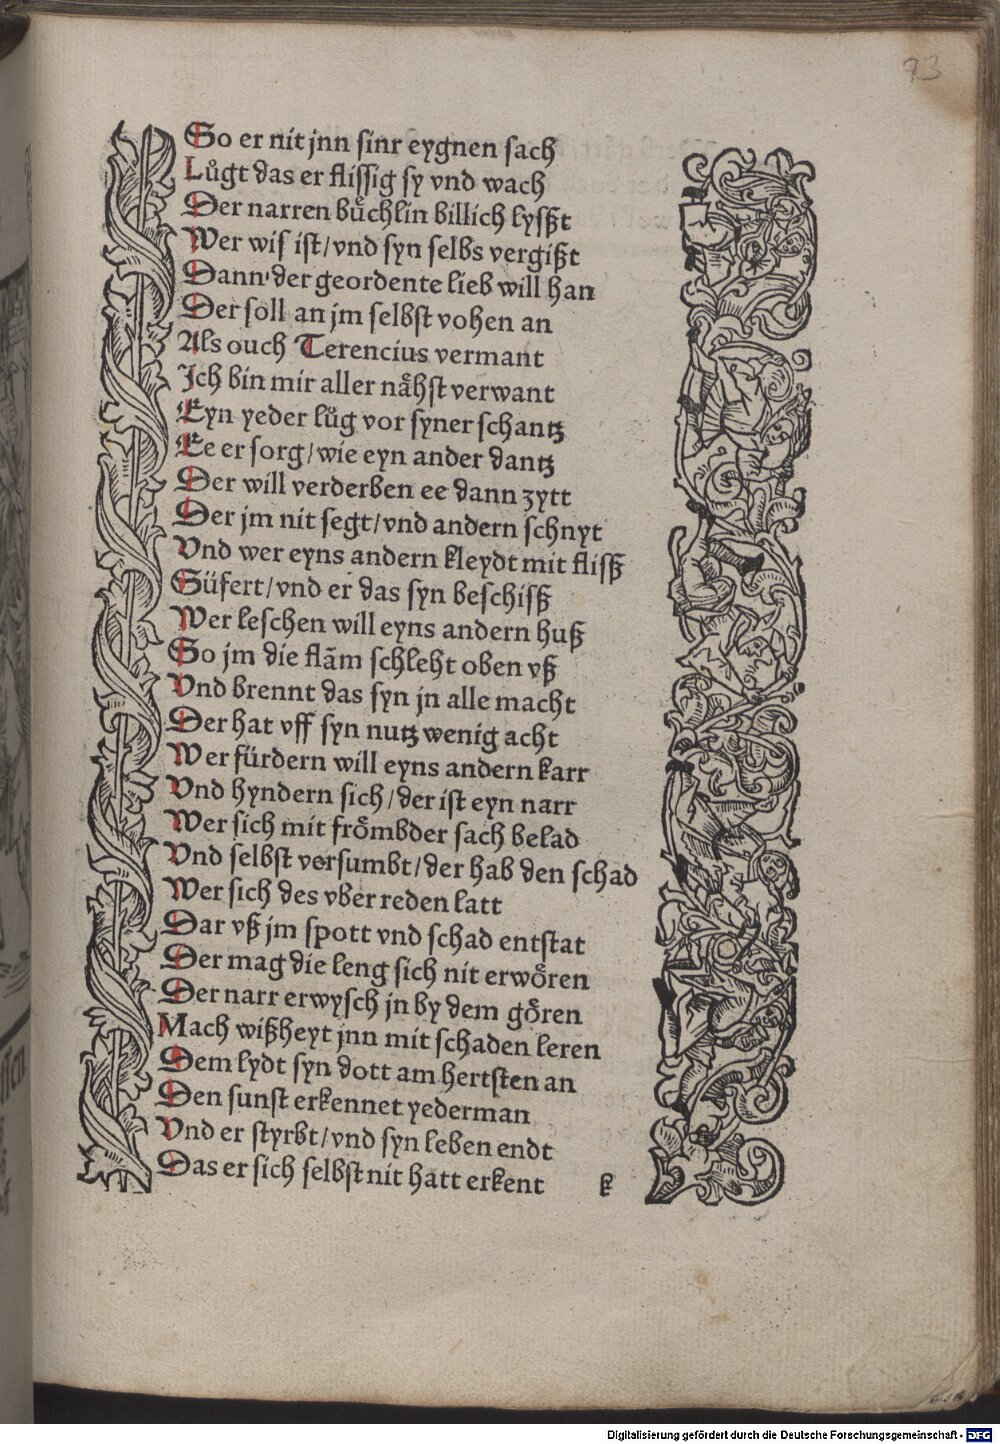 73
So er nit jnn sinr eygnen sach
Lůgt das er flissig sy vnd wach
Der narren bůchlin billich lyszt
Wer wisz ist/vnd syn selbs vergiszt
Dann der geordente lieb will han
Der soll an jm selbst vohen an
Als ouch Terencius vermant
Ich bin mir aller nåhst verwant
Eyn yeder lůg vor syner schantz
Ee er sorg/wie eyn ander dantz
Der will verderben ee dann zytt
Der jm nit segt/vnd andern schnyt
Vnd wer eyns andern kleydt mit flissz
Süfert/vnd er das syn beschissz
Wer leschen will eyns andern husz
So jm die flãm schleht oben vsz
Vnd brennt das syn jn alle macht
Der hat vff syn nutz wenig acht
Wer fürdern will eyns andern karr
Vnd hyndern sich/der ist eyn narr
Wer sich mit frömbder sach belad
Vnd selbst versumbt/der hab den schad
Wer sich des vber reden latt
Dar vsz jm spott vnd schad entstat
Der mag die leng sich nit erwören
Der narr erwysch jn by dem gören
Mach wiszheyt jnn mit schaden leren
Dem lydt syn dott am hertsten an
Den sunst erkennet yederman
Vnd er styrbt/vnd syn leben endt
Das er sich selbst nit hatt erkent k
Digitalisierung gefördert durch die Deutsche Forschungsgemeinschaft - DFG